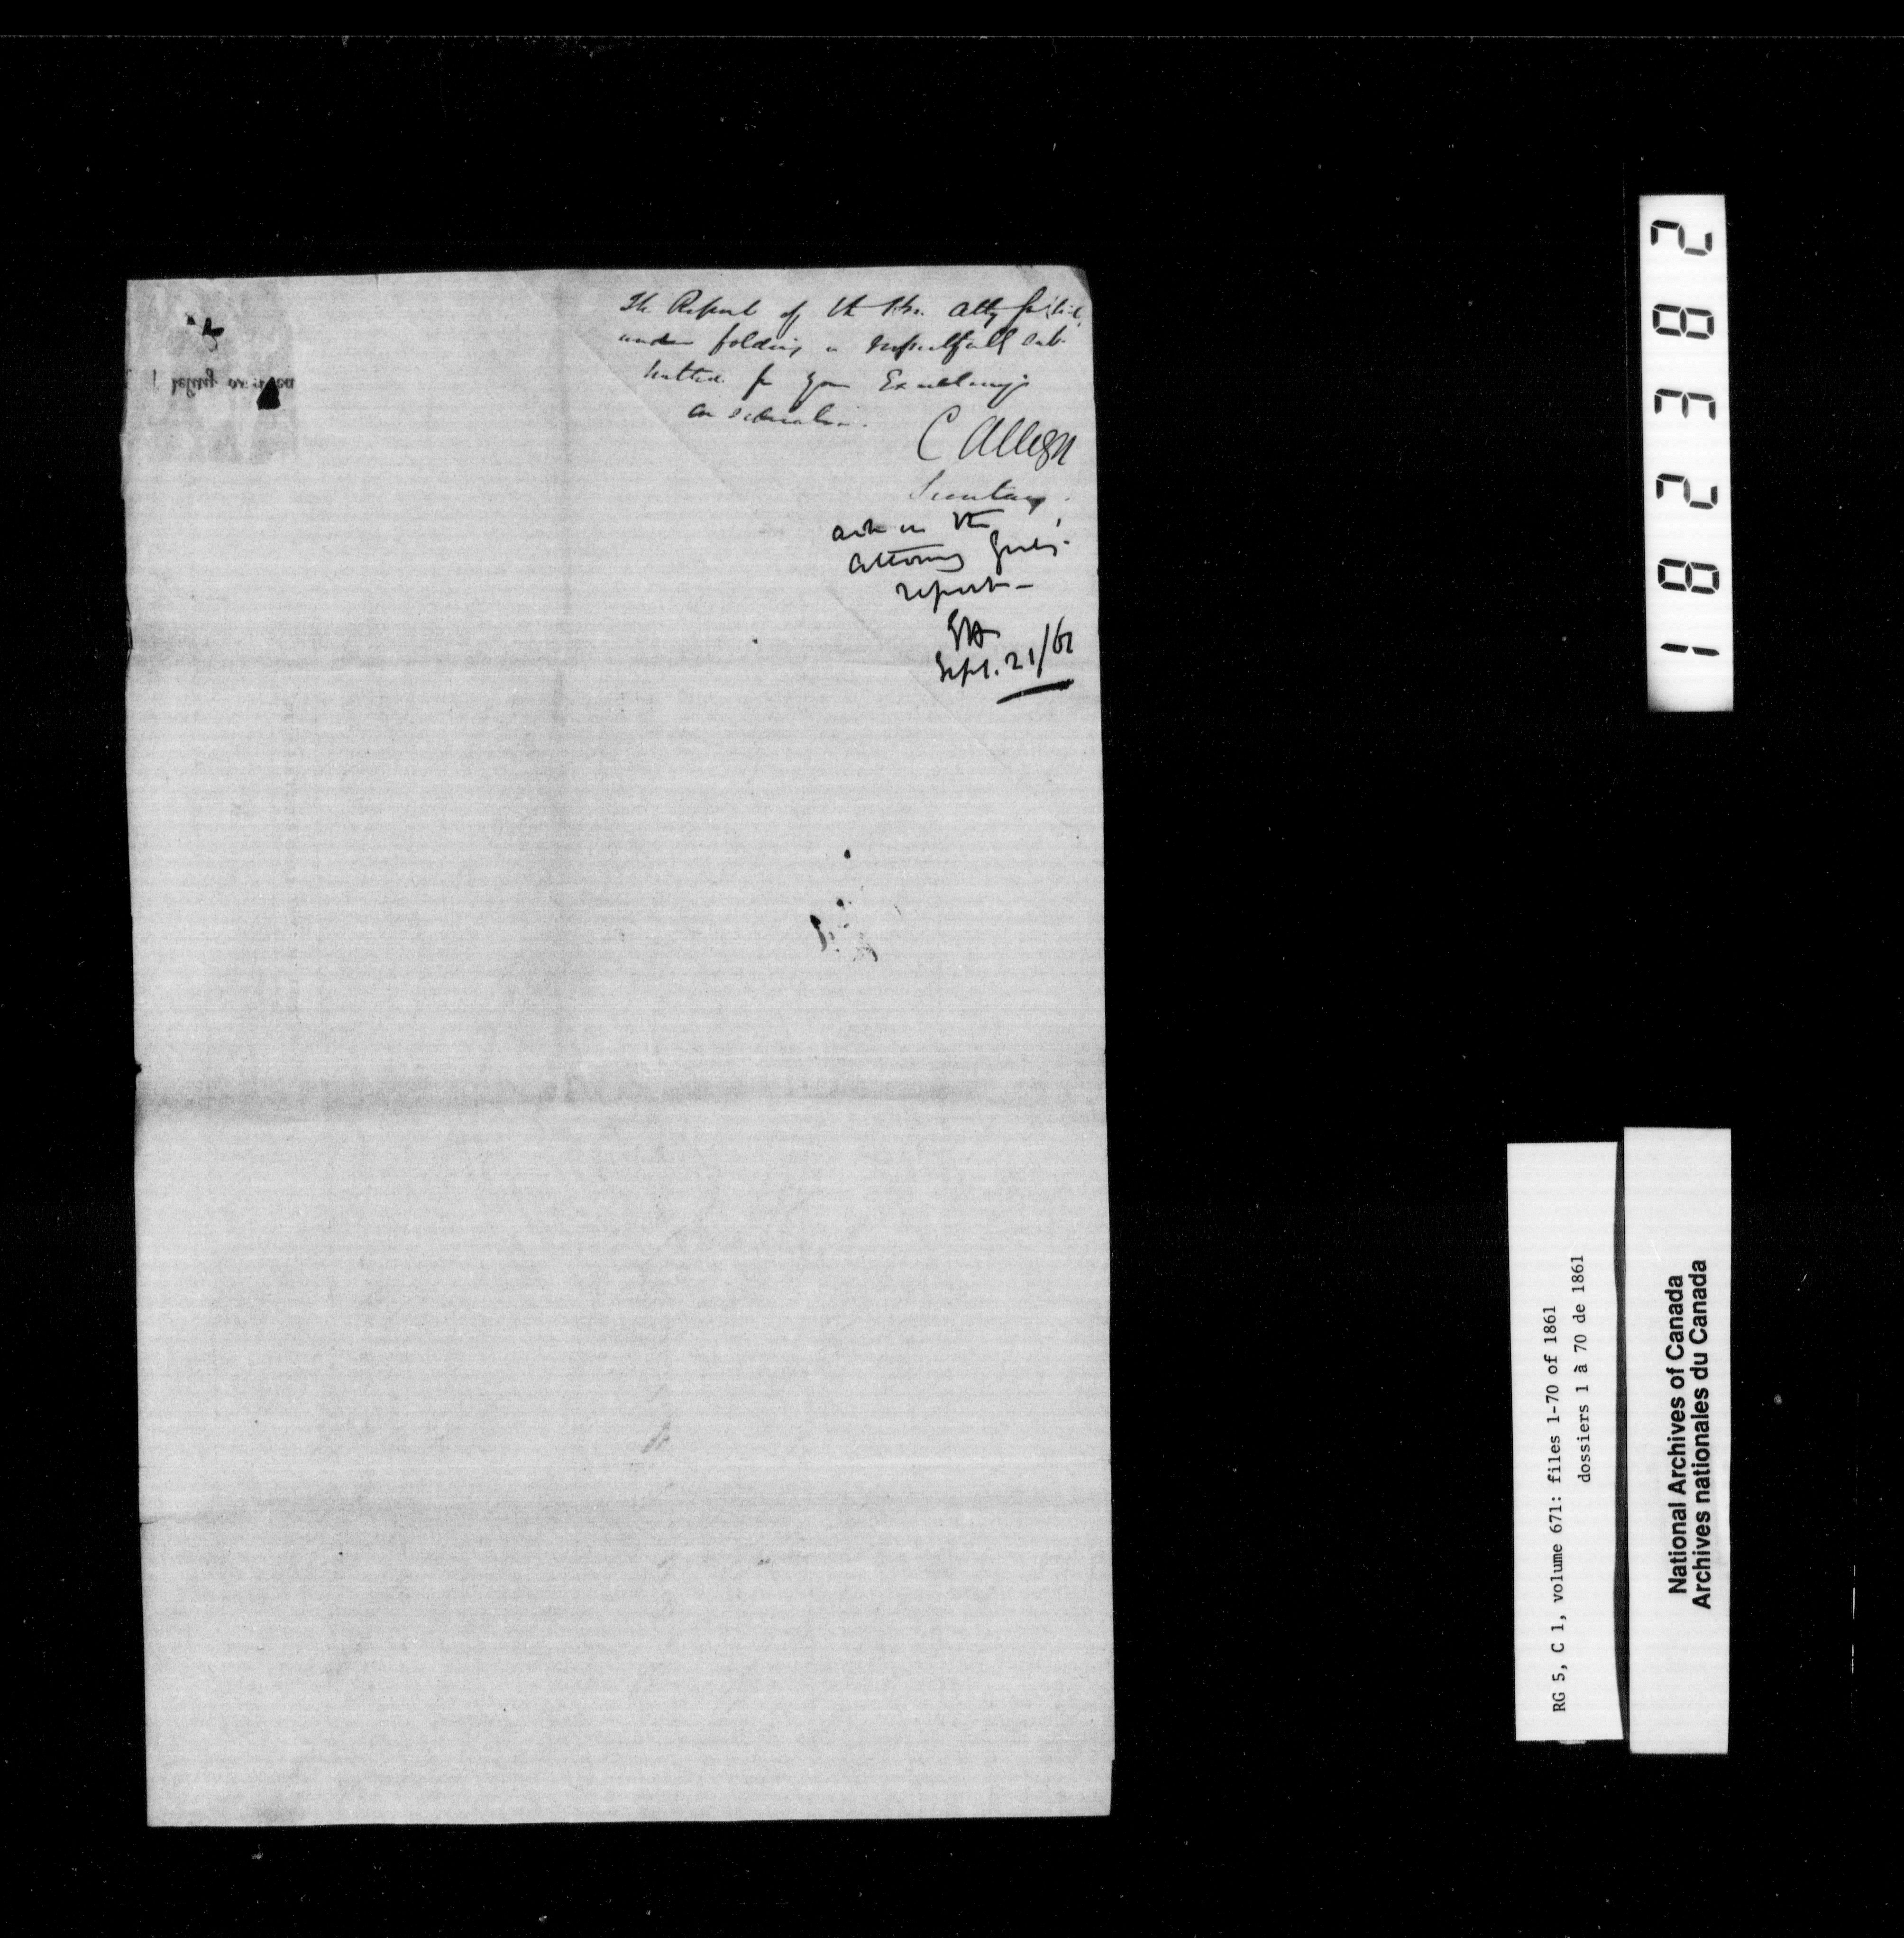 The Report of the Hon. Atty
under folding is respectfully sub-
mitted for your Excellency's
consideration.
C Alleyn
Secretary.
act on the
Attorney Genls.
report—
Sept. 21/61
182382
RG 5, C 1, volume 671: files 1-70 of 1861
dossiers 1 à 70 de 1861
National Archives of Canada
Archives nationales du Canada